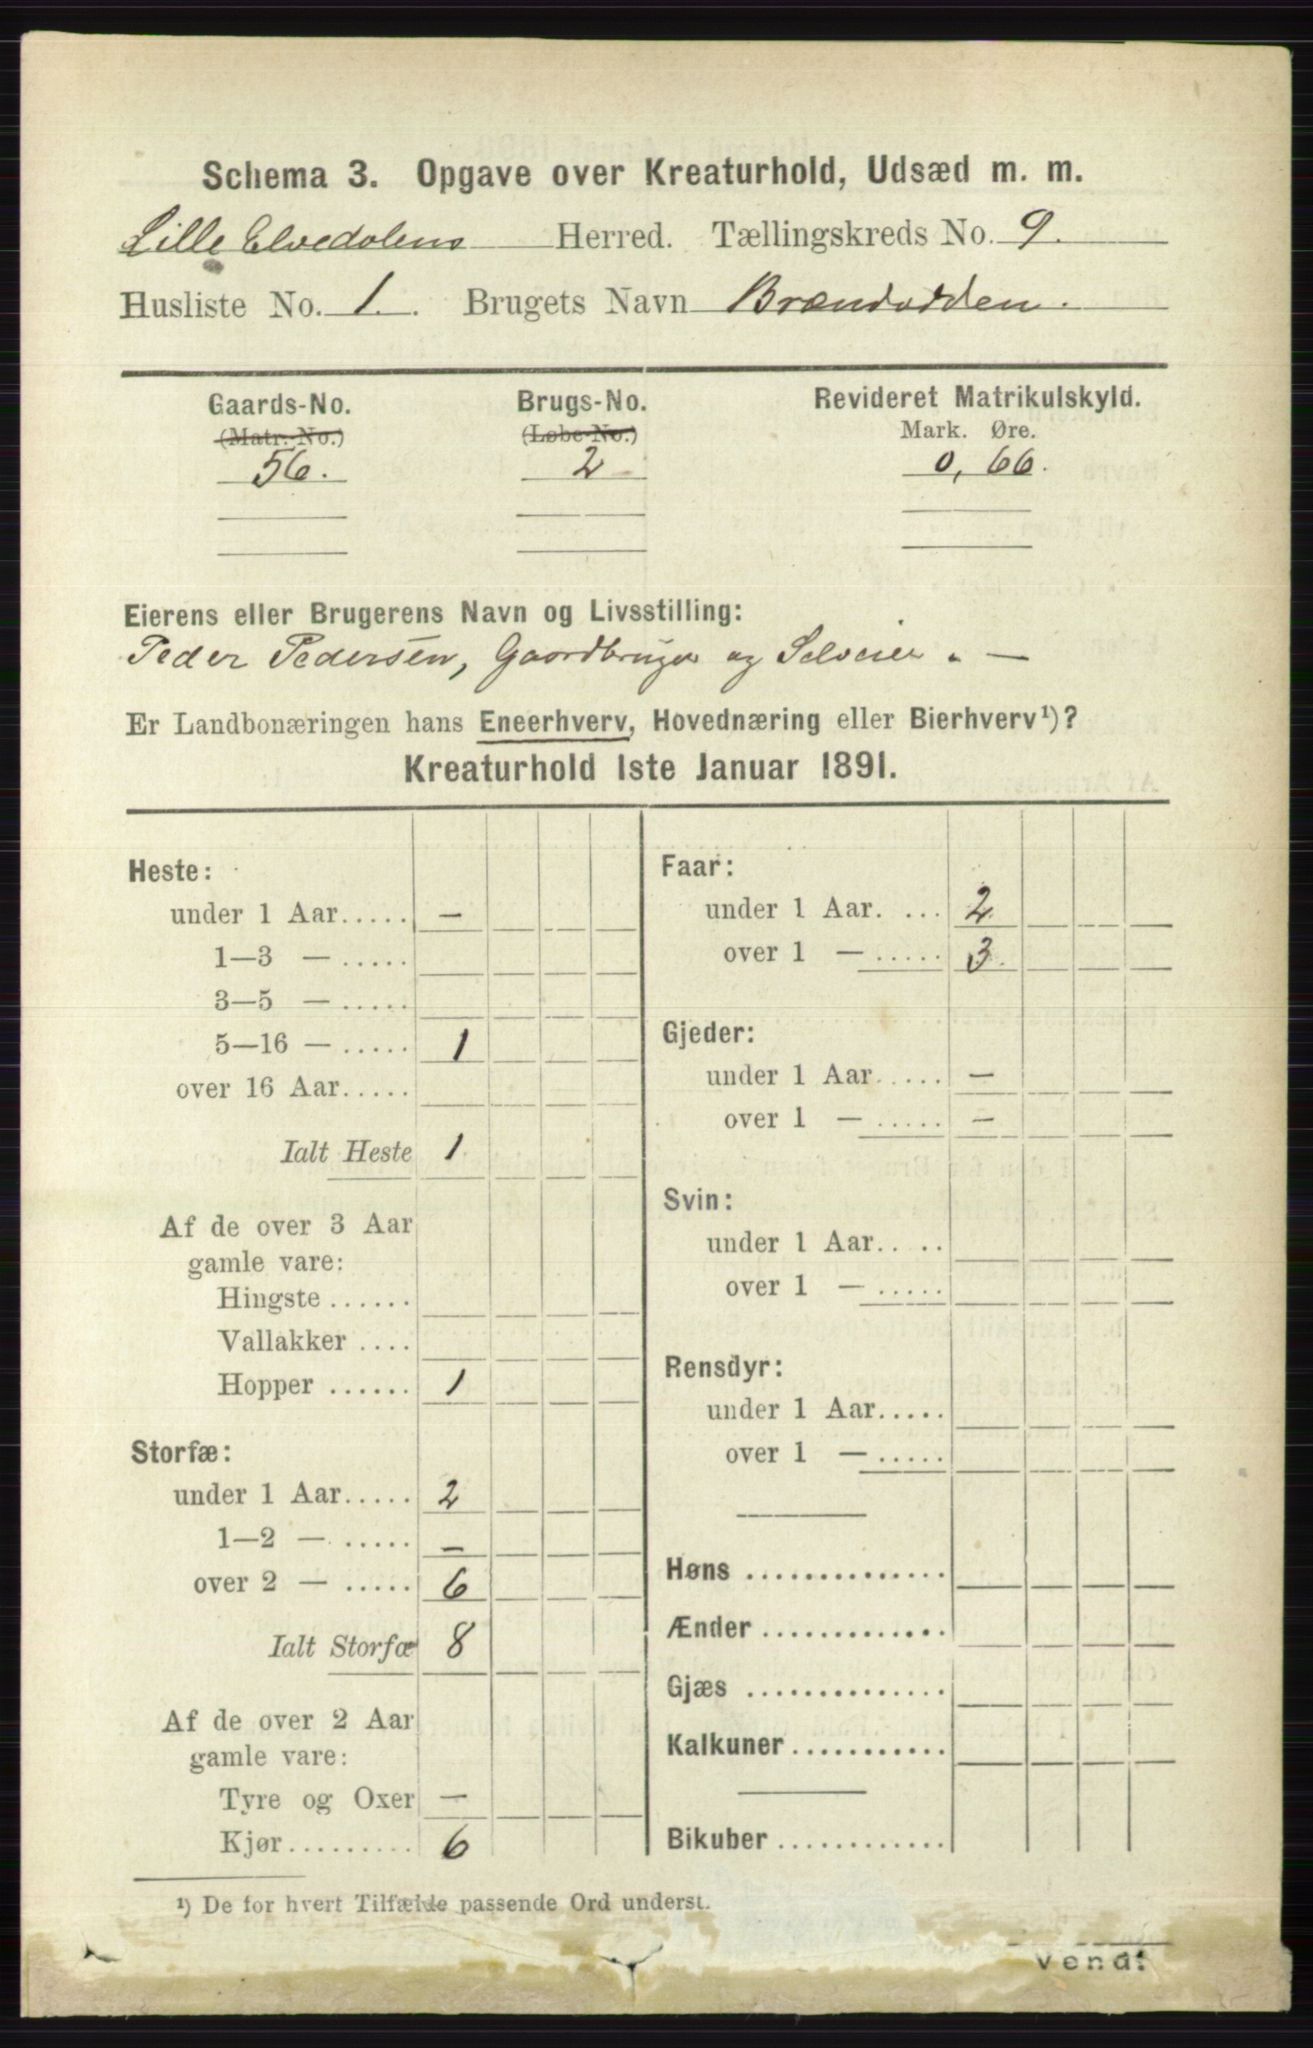 Schema 3. Opgave over Kreaturhold, Udsæd m. m.
Lille Elvedalens Herred. Tællingskreds No. 9.
Husliste No. 1. Brugets Navn Brændodden.
Gaards-No. Brugs-No. Revideret Matrikulskyld.
(Matr.-No.) (Løbe-No.) Mark. Øre.
56. 2 0,66.
Eierens eller Brugerens Navn og Livsstilling:
Peder Pedersen, Gaardbruger og Selveier. —
Er Landbonæringen hans Eneerhverv, Hovednæring eller Bierhverv¹)?
Kreaturhold 1ste Januar 1891.
Heste:
under 1 Aar..... —
1—3 — .....
3—5 — .....
5—16 — ..... 1
over 16 Aar.....
Ialt Heste 1.
Af de over 3 Aar
gamle vare:
Hingste ......
Vallakker ....
Hopper ...... 1
Storfæ:
under 1 Aar..... 2
1—2 — ..... —
over 2 — ..... 6
Ialt Storfæ 8
Af de over 2 Aar
gamle vare:
Tyre og Oxer —
Kjør.......... 6
Faar:
under 1 Aar. ... 2.
over 1 — ..... 3.
Gjeder:
under 1 Aar..... —
over 1 — ..... —
Svin:
under 1 Aar.. ..
over 1 — .....
Rensdyr:
under 1 Aar.....
over 1 — .....
Høns ..............
Ænder .............
Gjæs ..............
Kalkuner ...........
Bikuber ............
¹) De for hvert Tilfælde passende Ord underst.
Vend!